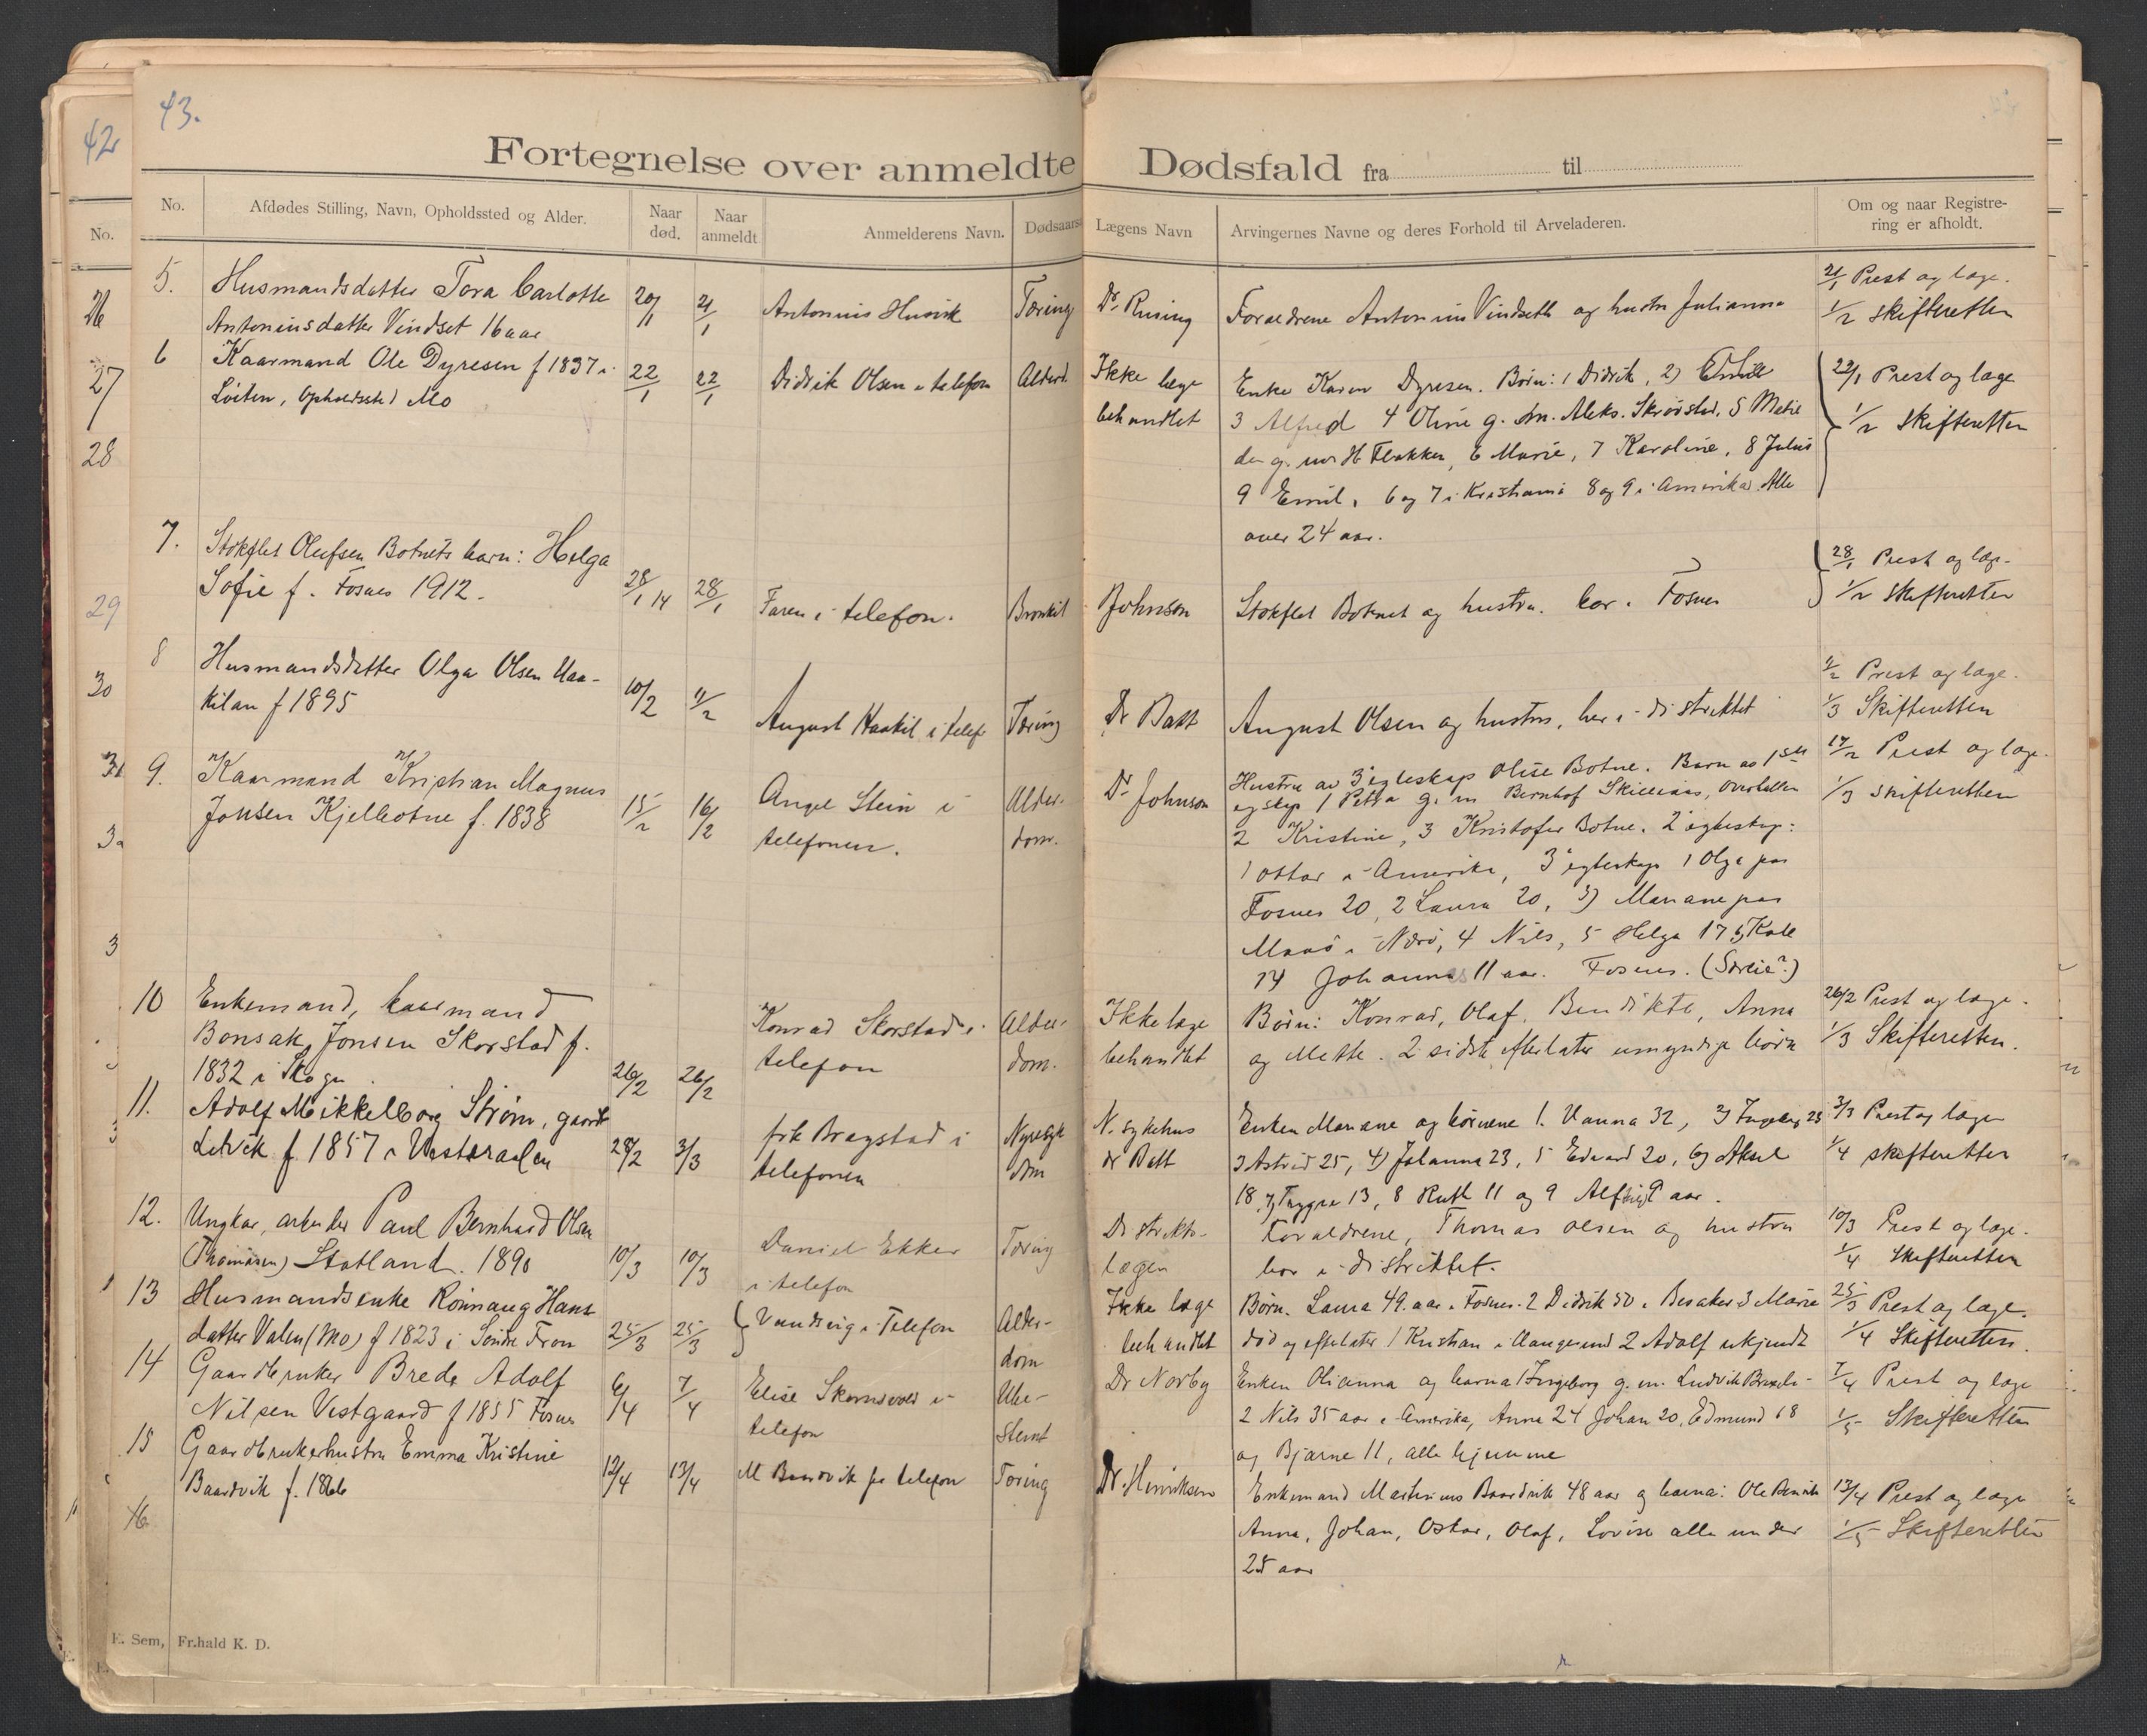 43.
42
Fortegnelse over anmeldte Dødsfald fra til
No.
No. Afdødes Stilling, Navn, Opholdssted og Alder. Naar død. Naar anmeldt Anmelderens Navn. Dødsaars Lægens Navn Arvingernes Navne og deres Forhold til Arveladeren. Om og naar Registrering er afholdt.
26
27
28
29
30
31
5. Husmandsdatter Tora Carlotte
Antoniusdatter Vindset 16 aar
20/1 21/1 Antonius Husvik Tæring Dr. Rising
Forældrene Antonius Vindseth og hustru Julianna
21/1 Prest og læge.
1/2 skifteretten
6 Kaarmand Ole Dyresen f 1837 i
Løiten, Opholdssted Mo
22/1 22/1 Didrik Olsen i telefon Alderd. Ikke læge
behandlet
Enke Karen Dyresen. Børn: 1 Didrik, 2)
3 Alfred 4 Oline g. m. Aleks. Skrøvstad, 5 Metil
de g. m. H Flakken, 6 Marie, 7 Karoline, 8 Julius
9 Emil, 6 og 7 i Kristiania 8 og 9 i Amerika. Alle
over 24 aar.
22/1 Prest og læge
1/2 skifteretten
7. Stokflet Olufsen Botnets barn: Helga
Sofie f. Fosnes 1912.
28/1 14 28/1 Faren i telefon. Bronkit Johnson
Stokflet Botnet og hustru. bor i Fosnes
28/1 Prest og læge.
1/2 skifteretten
8 Husmandsdatter Olga Olsen Haa-
kilan f 1895
10/2 11/2 August Haakil i telef Tæring Dr Batt
August Olsen og hustru, her i distriktet
11/2 Prest og læge.
1/3 Skifteretten
9. Kaarmand Kristian Magnus
Jonsen Kjelbotne f. 1838
15/2 16/2 Angel Stein i
telefonen.
Alder-
dom.
Dr Johnson
Hustru av 3 egteskap Olise Botne. Barn av 1ste
egtskap 1 Petra g. m Bernhof Skilleaas, Overhallen
2 Kristine, 3 Kristofer Botne. 2 egteskap:
1 Ottar i Amerika, 3 egteskap 1 Olga paa
Fosnes 20, 2 Laura 20, 3) Mariane paa
i Nærø, 4 Nils, 5 Helga 17 6)
14 Johannes 11 aar. Fosnes.
17/2 Prest og læge.
1/3 skifteretten
10 Enkemand, kaarmand
Bonsak Jonsen Skorstad f.
1832 i Skogn
26/2 26/2 Konrad Skorstad i
telefon
Alder-
dom.
Ikke læge
behandlet
Børn: Konrad, Olaf, Bendikte, Anna
og Mette. 2 sidste efterlater umyndige børn
26/2 Prest og læge.
1/3 Skifteretten.
11. Adolf Mikkelborg Strøm, gaardb
Letvik f 1857 i Vesteraalen
28/2 3/3 frk Bragstad i
telefonen
Nyresyk
dom
N. sykehus
dr Batt
Enken Mariane og børnene 1. Hanna 32, 2) Ingeborg 28
3 Astrid 25, 4) Johanna 23, 5 Edvard 20, 6) Aksel
18, 7) Trygve 13, 8 Ruth 11 og 9 Alfhild 9 aar.
3/3 Prest og læge
1/4 skifteretten
12. Ungkar, arbeider Paul Bernhard Olsen
(Thomasen) Statland. 1890
10/3 10/3 Daniel Ekker
i telefon
Tæring Distrikts-
lægen
Forældrene, Thomas Olsen og hustru
bor i distriktet.
10/3 Prest og læge.
1/4 skifteretten
13 Husmandsenke Rønnaug Hans
datter Valen (Mo) f 1823 i Søndre Fron
25/3 25/3 Vandvig i Telefon Alder-
dom
Ikke læge
behandlet
Børn. Laura 49 aar i Fosnes. 2 Didrik 50 i Besaker 3 Marie
død og efterlater 1 Kristian i Haugesund 2 Adolf ukjendt
25/3 Prest og læge.
1/4 Skifteretten.
14 Gaardbruker Brede Adolf
Nilsen Vestgaard f 1855 Fosnes
6/4 7/4 Elise i
telefon
Ube-
stemt
Dr Norby
Enken Olianna og barna 1 Ingeborg g. m. Ludvik
2 Nils 35 aar i Amerika, Anna 24 Johan 20, Edmund 18
og Bjarne 11, alle hjemme
7/4 Prest og læge
1/5 Skifteretten
15 Gaardbrukerhustru Emma Kristine
Baardvik f. 1866
12/4 13/4 M Baardvik pr telefon Tæring Dr. Henriksen
Enkemand Martinus Baardvik 48 aar og barna: Ole
Anna, Johan, Oskar, Olaf, Lovise alle under
25 aar
13/4 Prest og læge
1/5 Skifteretten
16
E. Sem, Fr.hald K. D.